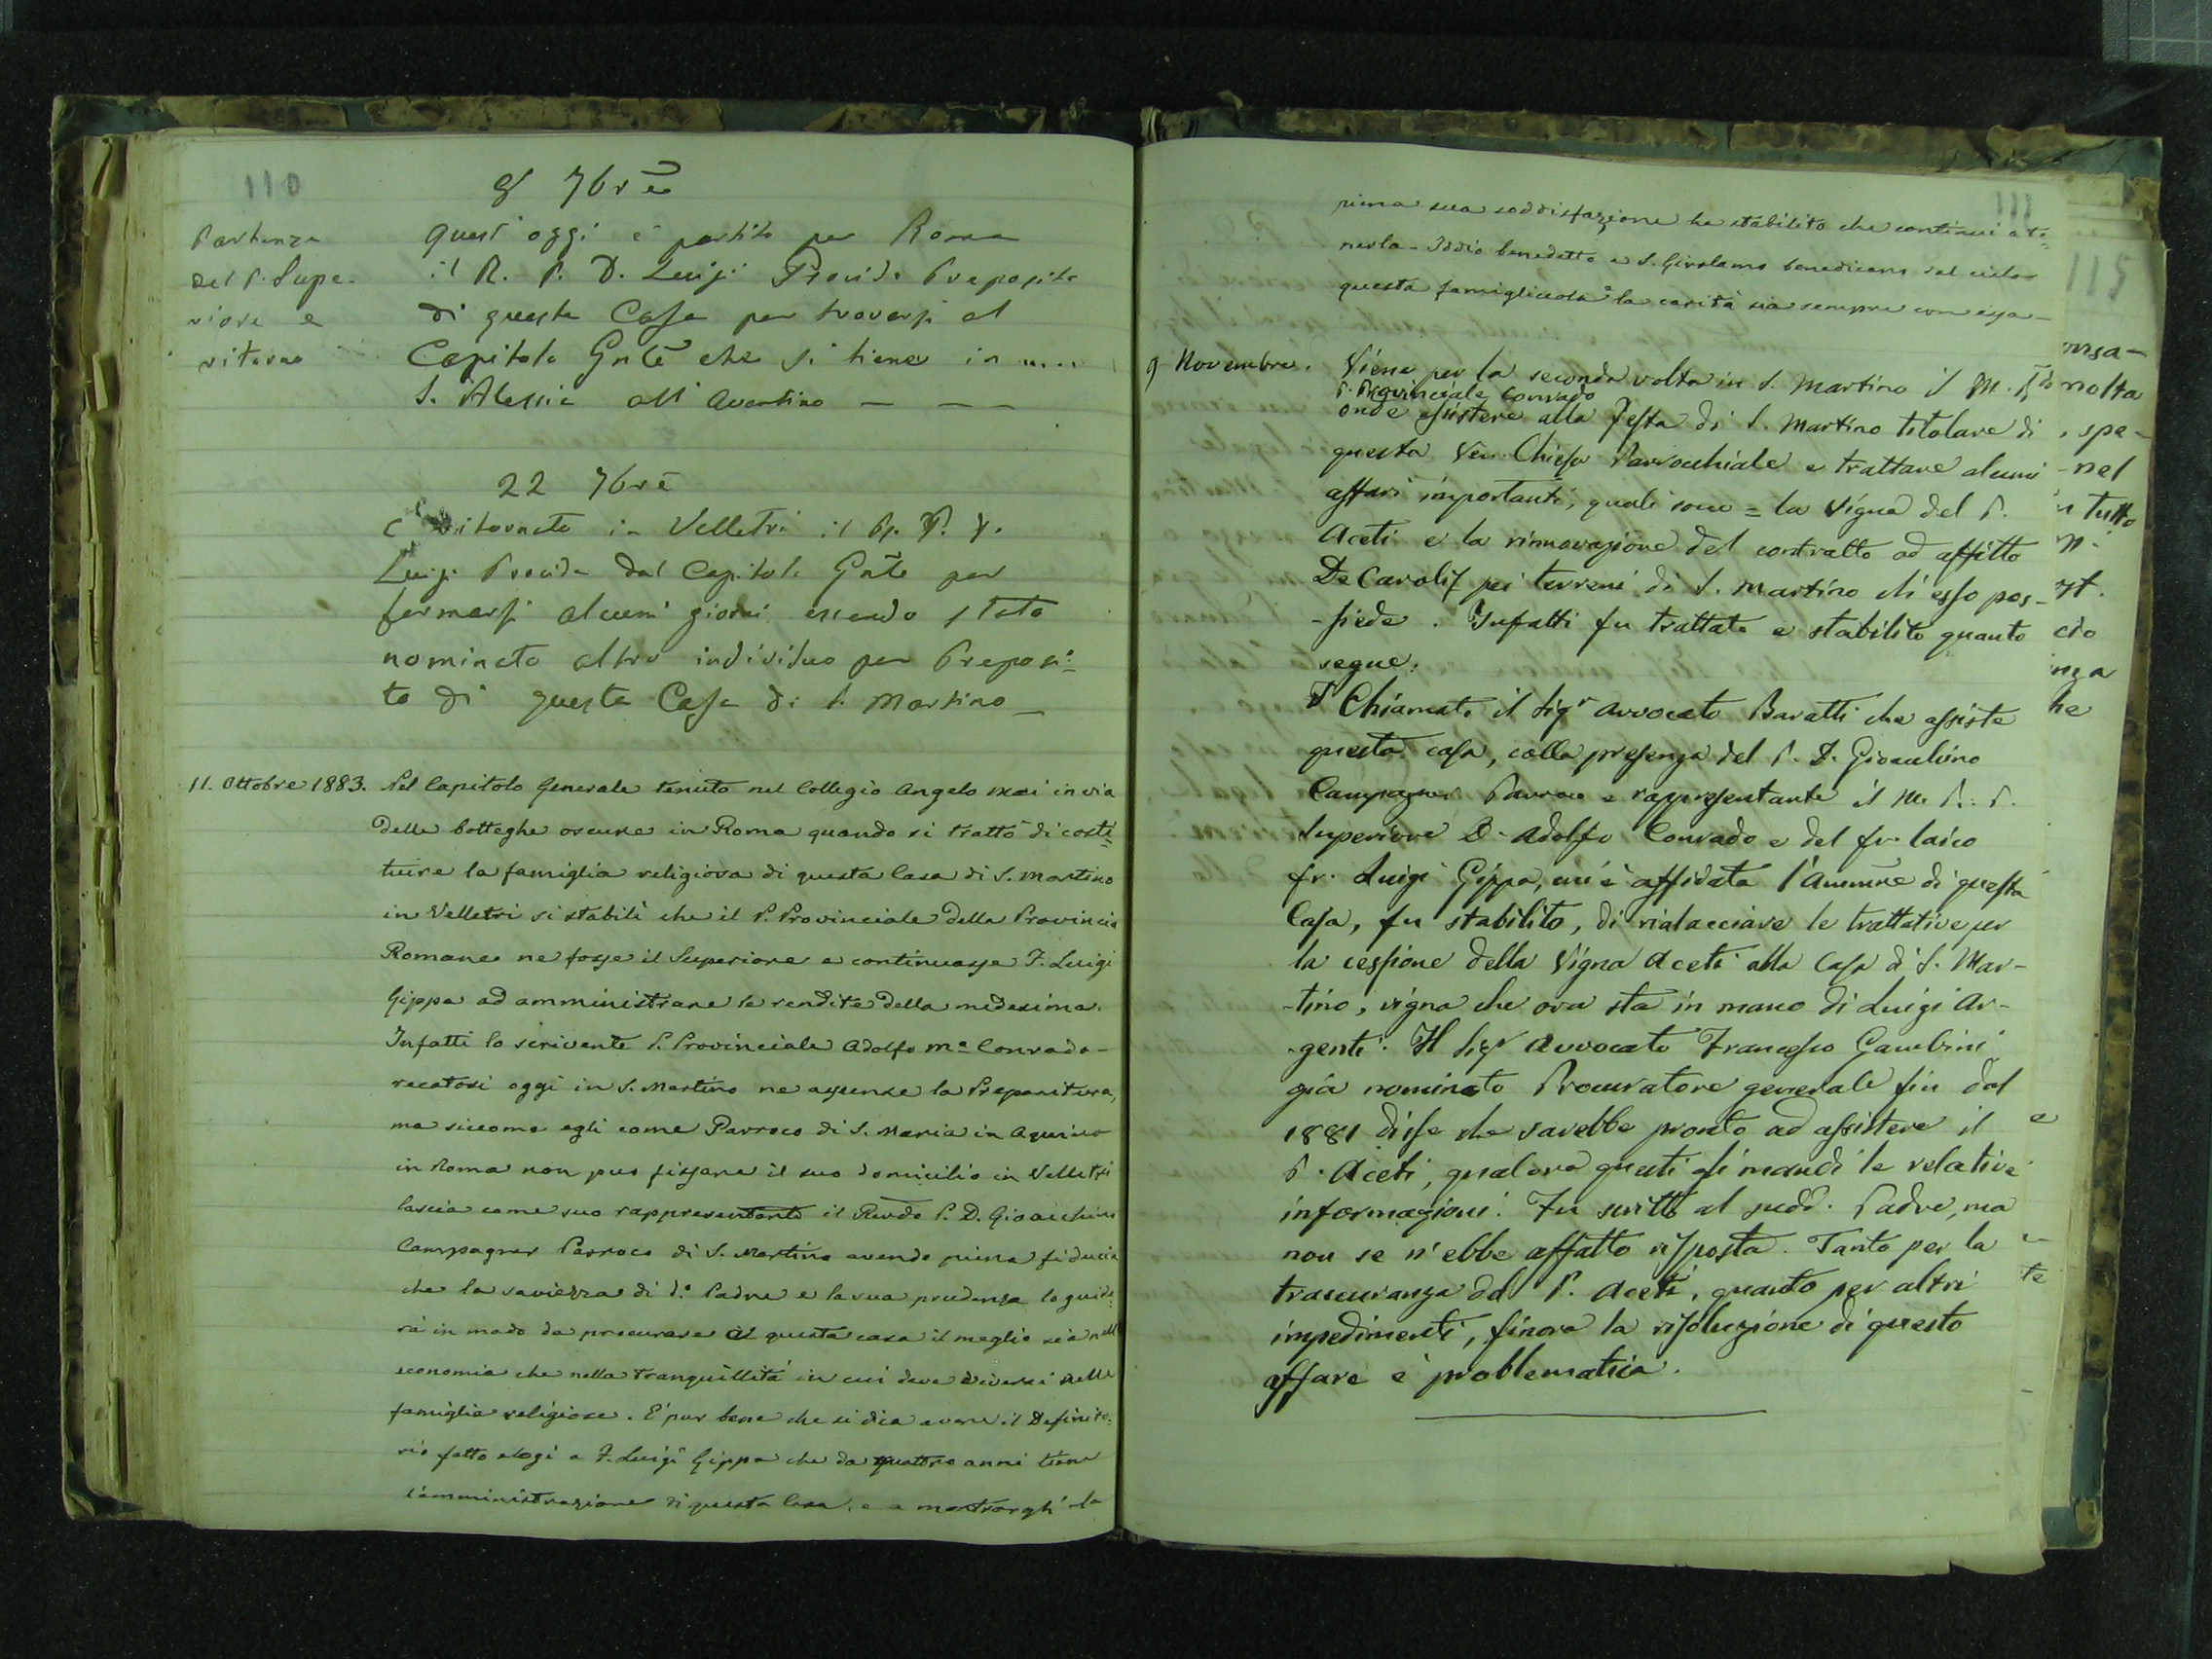 110
8 7bre
Partenza
del P. Supe-
riore e
ritorno
Quest'oggi è partito per Roma
il R. P. D. Luigi Procida Preposito
di questa Casa per trovarsi al
Capitolo Gnle che si tiene in ....
S. Alessio all'Aventino — — —
22 7bre
È ritornato in Velletri il R. P. D.
Luigi Procida dal Capitolo Gnle per
fermarsi alcuni giorni essendo stato
nominato altro individuo per Preposi=
to di questa Casa di S. Martino —
11. Ottobre 1883. Nel Capitolo Generale tenuto nel Collegio Angelo Mai in via
delle botteghe oscure in Roma quando si trattò di costi=
tuire la famiglia religiosa di questa Casa di S. Martino
in Velletri si stabilì che il P. Provinciale della Provincia
Romana ne fosse il Superiore e continuasse F. Luigi
Gippa ad amministrare le rendite della medesima.
Infatti lo scrivente P. Provinciale Adolfo Ma Conrado-
recatosi oggi in S. Martino ne assunse la Prepositura,
ma siccome egli come Parroco di S. Maria in Aquiro
in Roma non può fissare il suo domicilio in Velletri
lascia come suo rappresentante il Rendo P. D. Gioacchino
Campagner Parroco di S. Martino avendo piena fiducia
che la saviezza di do Padre e la sua prudenza lo guide=
rà in modo da procurare a questa casa il meglio sia nell'
economia che nella tranquillità in cui deve viversi nelle
famiglie religiose. È pur bene che si dica avere il Definito=
rio fatto elogi a F. Luigi Gippa che da quattro anni tiene
l'amministrazione di questa Casa, e a mostrargli la
111
piena sua soddisfazione ha stabilito che continui a te=
nerla - Iddio benedetto e S. Girolamo benedicano dal cielo
questa famigliuola e la carità sia sempre con essa -
9 Novembre. Viene per la seconda volta in S. Martino il M. R.
P. Provinciale Conrado
onde assistere alla Festa di S. Martino titolare di
questa Ven. Chiesa Parrocchiale e trattare alcuni
affari importanti, quali sono = la Vigna del P.
Aceti e la rinnovazione del contratto ad affitto
De Carolis pei terreni di S. Martino ch'esso pos-
-siede. Infatti fu trattato e stabilito quanto
segue.
1° Chiamato il Sigr Avvocato Baratti che assiste
questa casa, colla presenza del P. D. Gioacchino
Campagner Parroco e rappresentante il M. R. P.
Superiore D. Adolfo Conrado e del fr. laico
fr. Luigi Gippa, cui è affidata l'Ammne di questa
Casa, fu stabilito, di riallacciare le trattative per
la cessione della Vigna Aceti alla Casa di S. Mar-
-tino, vigna che ora sta in mano di Luigi Ar-
-genti. Il Sigr Avvocato Francesco Gambini
già nominato Procuratore generale fin dal
1881 disse che sarebbe pronto ad assistere il
P. Aceti, qualora questi gli mandi le relative
informazioni. Fu scritto al sudd. Padre, ma
non se n'ebbe affatto risposta. Tanto per la
trascuranza del P. Aceti, quanto per altri
impedimenti, finora la risoluzione di questo
affare è problematica.